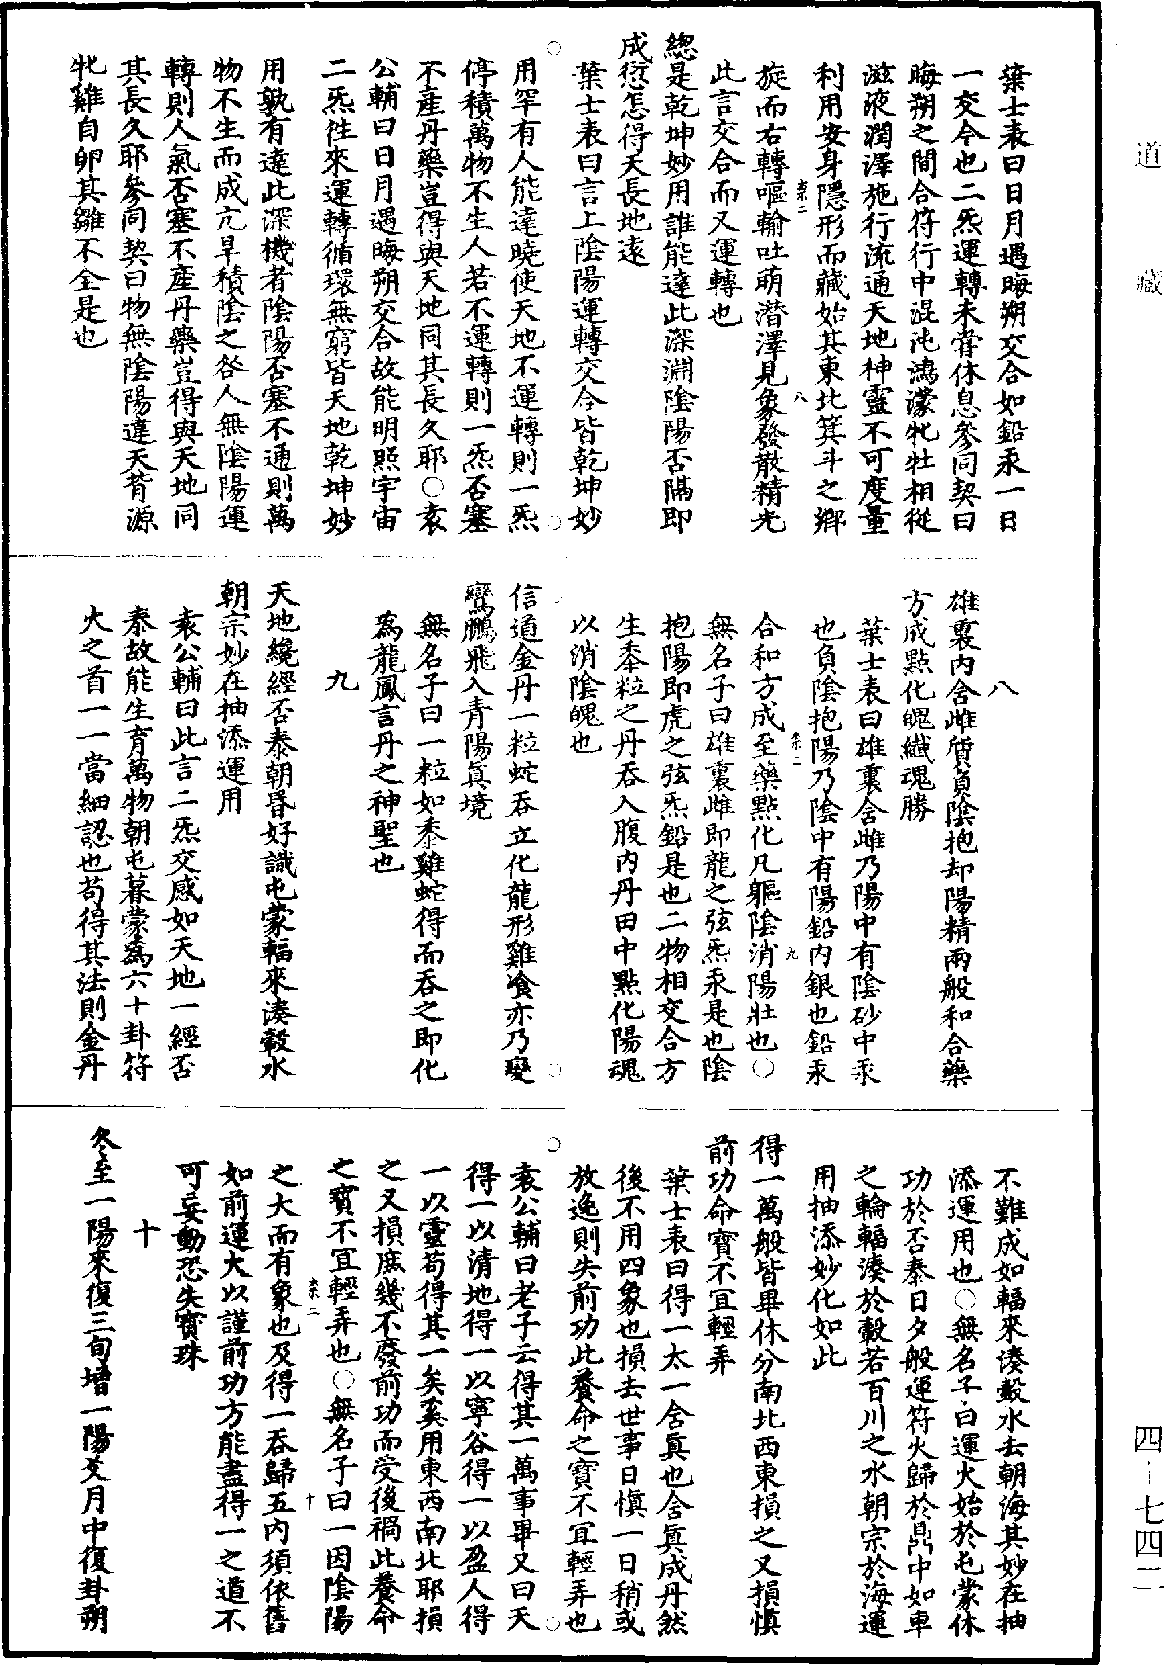 葉士表曰日月遇晦朔交合如鉛汞一日
一交合也二炁運轉未甞休息參同契曰
晦朔之間合符行中混沌鴻濛牝牡相從
滋液潤澤施行流通天地神靈不可度量
利用安身隱形而藏始其東北箕斗之鄉
旋而右轉嘔輪吐萌潜澤見象發散精光
此言交合而又運轉也
總是乾坤妙用誰能達此深淵陰陽否隔即
成愆怎得天長地遠
葉士表曰言上陰陽運轉交合皆乾坤妙
用罕有人能達曉使天地不運轉則一炁
停積萬物不生人若不運轉則一炁否塞
不產丹藥豈得與天地同其長久耶○袁
公輔曰日月遇晦朔交合故能明照宇宙
二炁徃來運轉循環無窮皆天地乾坤妙
用孰有達此深機者陰陽否塞不通則萬
物不生而成亢旱積陰之咎人無陰陽運
轉則人氣否塞不產丹藥豈得與天地同
其長久耶參同契曰物無陰陽違天背源
牝雞自卵其雛不全是也
八
雄裏內含雌質負陰抱却陽精兩般和合藥
方成點化魄纎魂勝
葉士表曰雄裏含雌乃陽中有陰砂中汞
也負陰抱陽乃陰中有陽鉛內銀也鉛汞
合和方成至藥點化凡軀陰消陽壯也○
無名子曰雄裏雌即龍之弦炁汞是也陰
抱陽即虎之弦炁鉛是也二物相交合方
生黍粒之丹吞入腹內丹田中點化陽魂
以消陰魄也
信道金丹一粒蛇吞立化龍形雞飡亦乃變
鸞鵬飛入青陽眞境
無名子曰一粒如黍雞蛇得而吞之即化
為龍鳳言丹之神聖也
九
天地纔經否泰朝昏好識屯蒙輻來湊轂水
朝宗妙在抽添運用
袁公輔曰此言二炁交感如天地一經否
泰故能生育萬物朝屯暮蒙為六十卦符
火之首一一當細認也苟得其法則金丹
不難成如輻來湊轂水去朝海其妙在抽
添運用也○無名子曰運火始於屯蒙休
功於否泰日夕般運符火歸於鼎中如車
之輪輻湊於轂若百川之水朝宗於海運
用抽添妙化如此
得一萬般皆畢休分南北西東損之又損慎
前功命寶不宜輕弄
葉士表曰得一太一含眞也含眞成丹然
後不用四象也損去世事日慎一日稍或
放逸則失前功此養命之寶不宜輕弄也
袁公輔曰老子云得其一萬事畢又曰天
得一以清地得一以寧谷得一以盈人得
一以靈苟得其一矣奚用東西南北耶損
之又損庶幾不廢前功而受後禍此養命
之寶不宜輕弄也○無名子曰一因陰陽
之大而有象也及得一吞歸五內須依舊
如前運火以謹前功方能盡得一之道不
可妄動恐失寳珠
十
冬至一陽來復三旬增一陽爻月中復卦朔
道藏
四-七四二